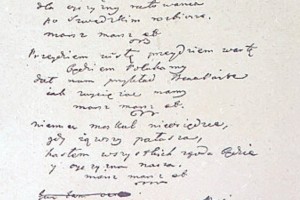 dla oyczyzny ratowania
po szwedzkim rozbiorze.
marsz marsz et.
Przeydziem wisłę przeydziem wartę
będziem Polakamy
dał nam przykład Bonaparte
jak zwyciężać mamy
marsz marsz et.
niemiec moskal nieosiędzie,
gdy jąwszy pałasza,
hasłem wszystkich zgoda będzie
y oyczyzna nasza.
marsz marsz et.